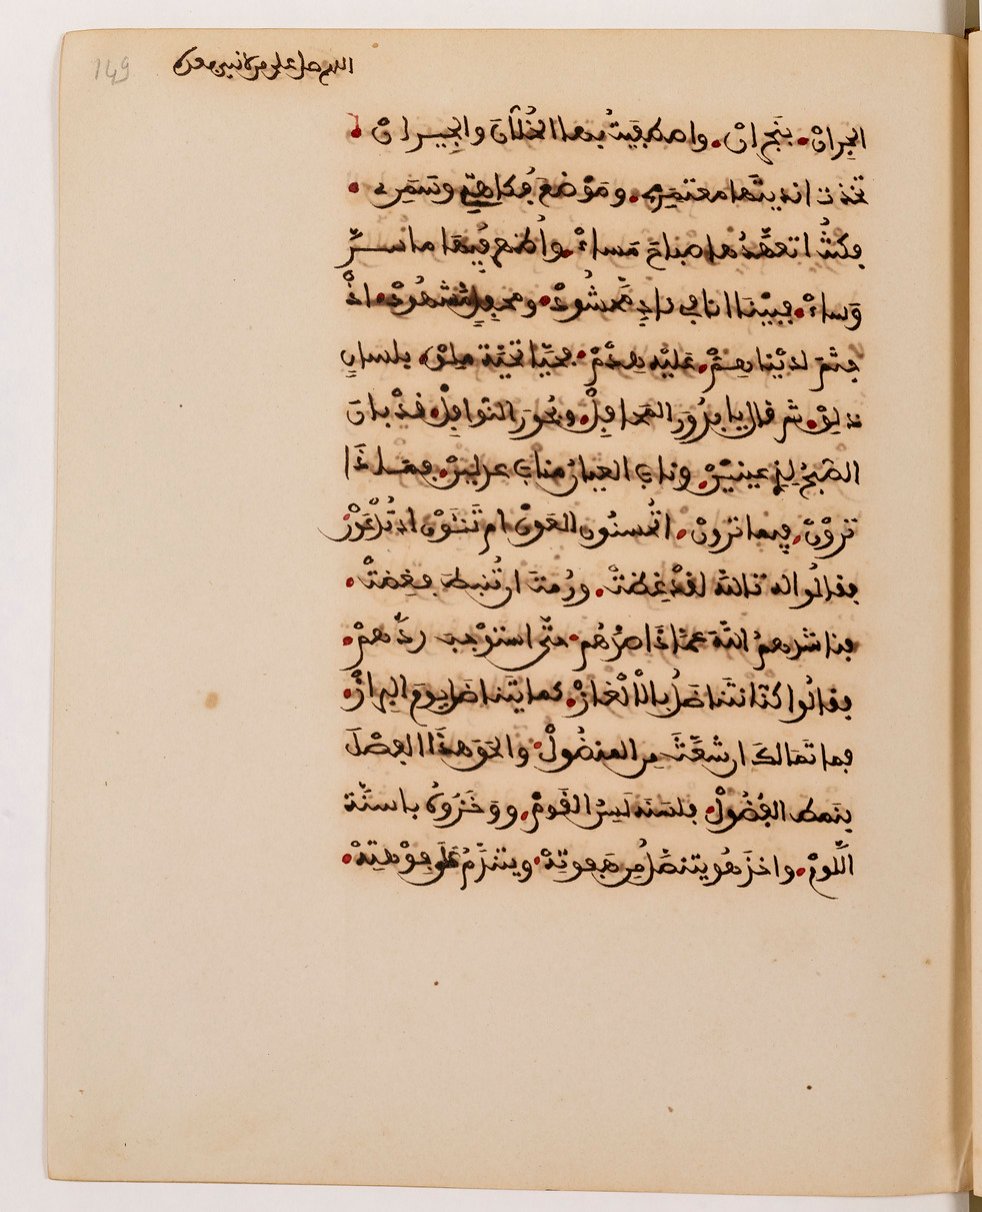 149
اللهم صل على
الجِرانْ. بنَجْرانْ. واصطفيتُ بها الخُلّانَ والجِيرانْ
تخذت انديتَها معتمَرِي. ومَوْضعَ فُكاهتِي وسَمَرِي
فكنتُ اتعهَّدُها صباحَ مَساءْ. وأطلع فيها ما سرَّ
وَساءْ. فبيْنَما انا في نادٍ مَحْشُودْ. ومحفِلٍ مشهُودْ. اذْ
جثَمَ لديْنا هِمّْ. عليْه هِدْمْ. فحيَّا تحيّة ملِقْ. بلسانٍ
ذلِقْ. ثم قال يا بدُورَ المحافِلْ. وبُحورَ النوافِلْ. قدْ بانَ
الصّبحُ لِذي عينيْنْ. وناب العيانُ مناب عدليْنْ. فما ذا
تروْنْ. فيما ترونْ. اتُحسنُون العَونْ ام تَنْئَوْن اذ تُدْعَوْنْ
فقالُوا له تالله لقدْ غِظتْ. ورُمتَ ان تُنبِط فغِضتْ.
فناشدهمُ اللّهَ عمَّا ذا صدَّهُم. حتّى استوْجبَ ردَّهمْ.
فقالُوا كنّا نتَناضَلُ بالْالْغازْ. كما يتَناضل يومَ البِرازْ.
فما تَمالكَ ان شعَّثَ من المنضُولْ. والحَق هذا الفضْلَ
بنَمط الفُضُولْ. فلسَنَه لَسِنُ القومْ. ووَخَزُوهُ باسنّة
اللّومْ. واخذَ هُو يتنصَّلُ مِن هَفوتِهْ. ويتندَّمُ عَلَى فوْهتِهْ.